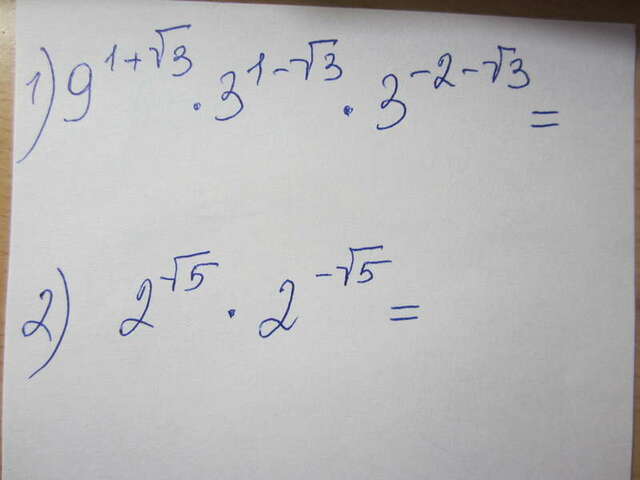 1) 9^{1+√3} · 3^{1-√3} · 3^{-2-√3} =
2) 2^{√5} · 2^{-√5} =